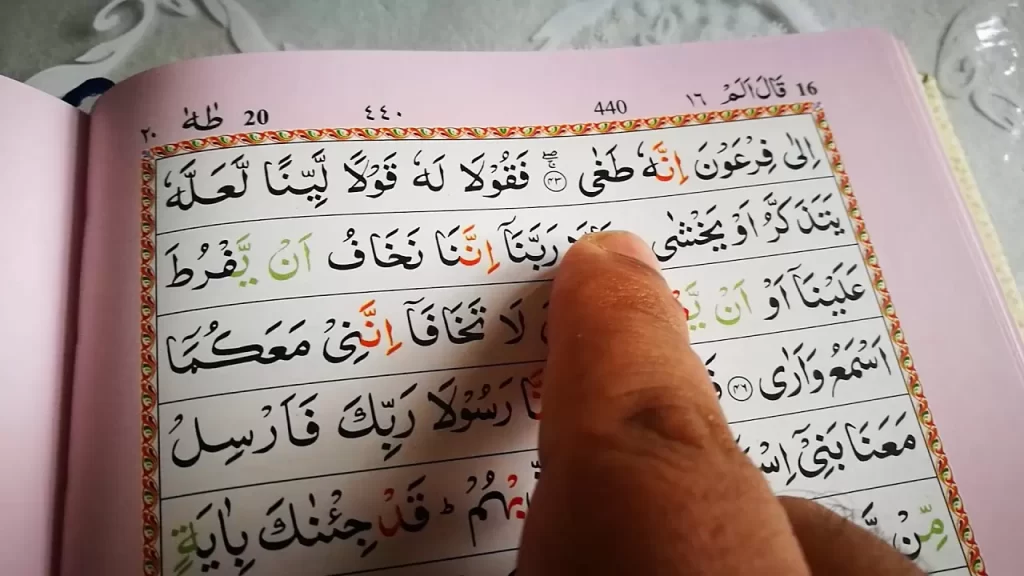 16 قَالَ اَلَمْ ١٦ 440 ٤٤٠ 20 طٰهٰ ٢٠
اِلٰى فِرْعَوْنَ اِنَّهٗ طَغٰى ۝٤٣ فَقُوْلَا لَهٗ قَوْلًا لَّيِّنًا لَّعَلَّهٗ
يَتَذَكَّرُ اَوْ يَخْشٰى رَبَّنَآ اِنَّنَا نَخَافُ اَنْ يَّفْرُطَ
عَلَيْنَآ اَوْ اَنْ لَا تَخَافَآ اِنَّنِىْ مَعَكُمَآ
اَسْمَعُ وَاَرٰى ۝٤٦ رَسُوْلَا رَبِّكَ فَاَرْسِلْ
مَعَنَا بَنِىْٓ قَدْ جِئْنٰكَ بِاٰيَةٍ
مِّنْ